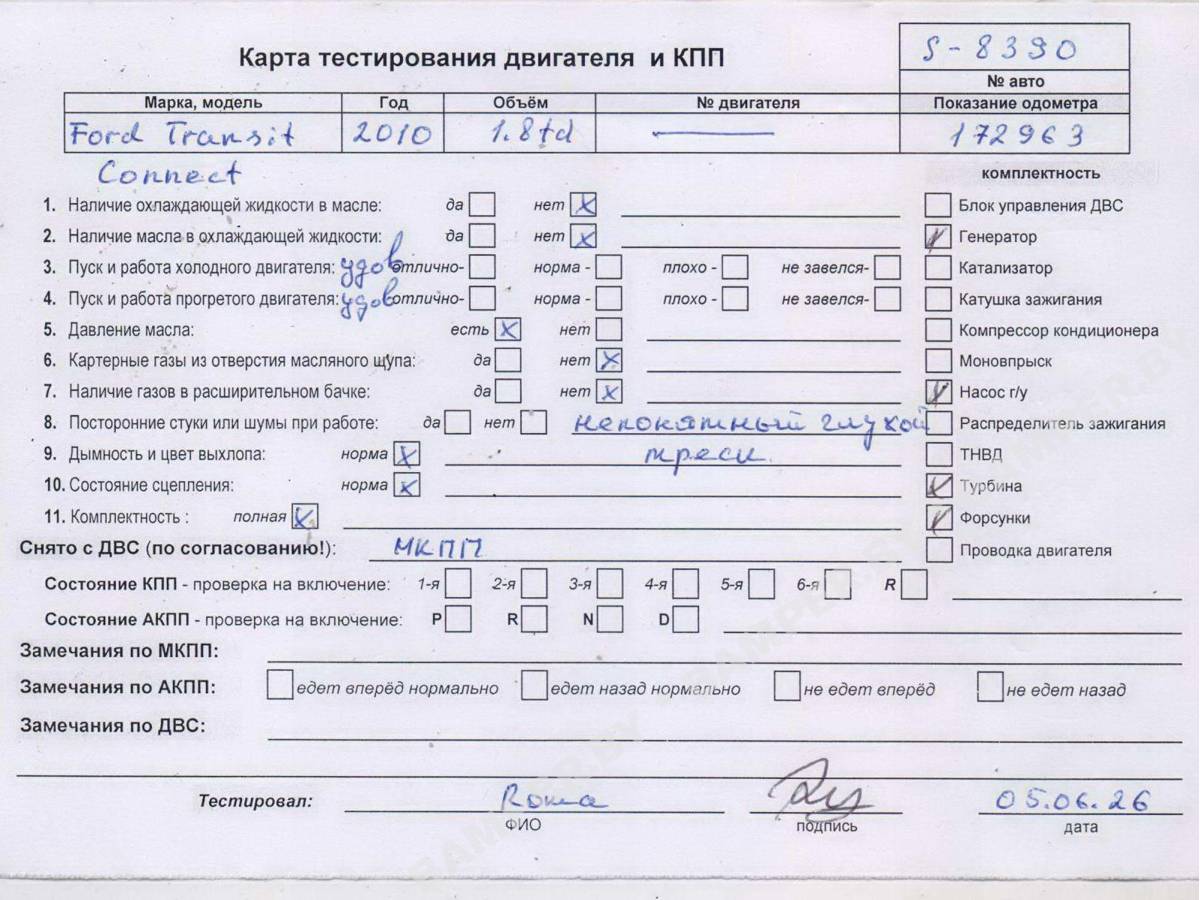 S-8390
Карта тестирования двигателя и КПП
№ авто
Марка, модель Год Объём № двигателя Показание одометра
Ford Transit 2010 1.8td — 172963
Connect
комплектность
1. Наличие охлаждающей жидкости в масле: да нет x Блок управления ДВС
2. Наличие масла в охлаждающей жидкости: да нет x Генератор
3. Пуск и работа холодного двигателя: удов отлично- норма - плохо - не завелся- Катализатор
4. Пуск и работа прогретого двигателя: удов отлично- норма - плохо - не завелся- Катушка зажигания
5. Давление масла: есть x нет Компрессор кондиционера
6. Картерные газы из отверстия масляного щупа: да нет x Моновпрыск
7. Наличие газов в расширительном бачке: да нет x Насос г/у
8. Посторонние стуки или шумы при работе: да нет непонятный глухой Распределитель зажигания
9. Дымность и цвет выхлопа: норма x треск. ТНВД
10. Состояние сцепления: норма x Турбина
11. Комплектность : полная x Форсунки
Снято с ДВС (по согласованию!): МКПП Проводка двигателя
Состояние КПП - проверка на включение: 1-я 2-я 3-я 4-я 5-я 6-я R
Состояние АКПП - проверка на включение: P R N D
Замечания по МКПП:
Замечания по АКПП: едет вперёд нормально едет назад нормально не едет вперёд не едет назад
Замечания по ДВС:
Тестировал: Рома 05.06.26
ФИО подпись дата